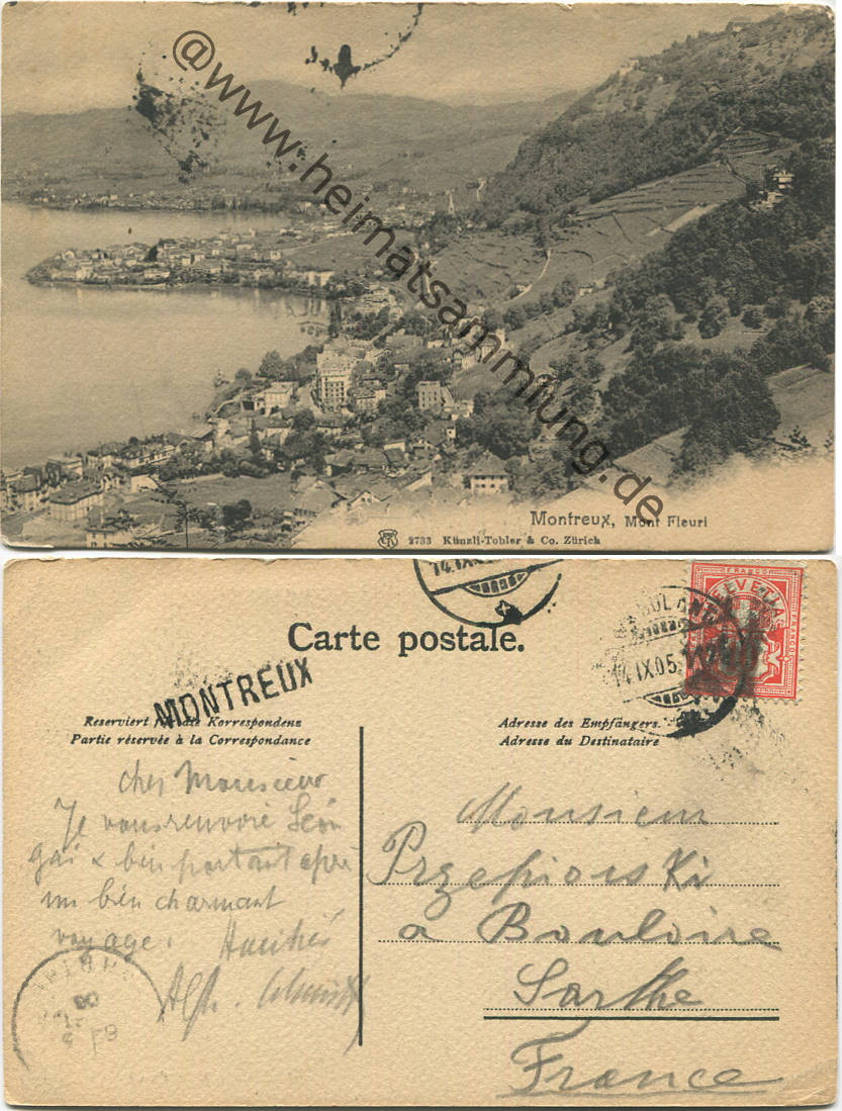 @www.heimatsammlung.de
Montreux, Mont Fleuri
2733 Künzli-Tobler & Co. Zürich
14.IX.
Carte postale.
AMBULANT
14.IX.05.
FRANCO
HELVETIA
MONTREUX
Reserviert für die Korrespondenz
Partie réservée à la Correspondance
Adresse des Empfängers.
Adresse du Destinataire
cher Monsieur
Je vous renvoie Léon
gai & bien portant après
un bien charmant
voyage. Amitiés
Alph. Schmidt
Monsieur
Przepiorski
a Bouloire
Sarthe
France